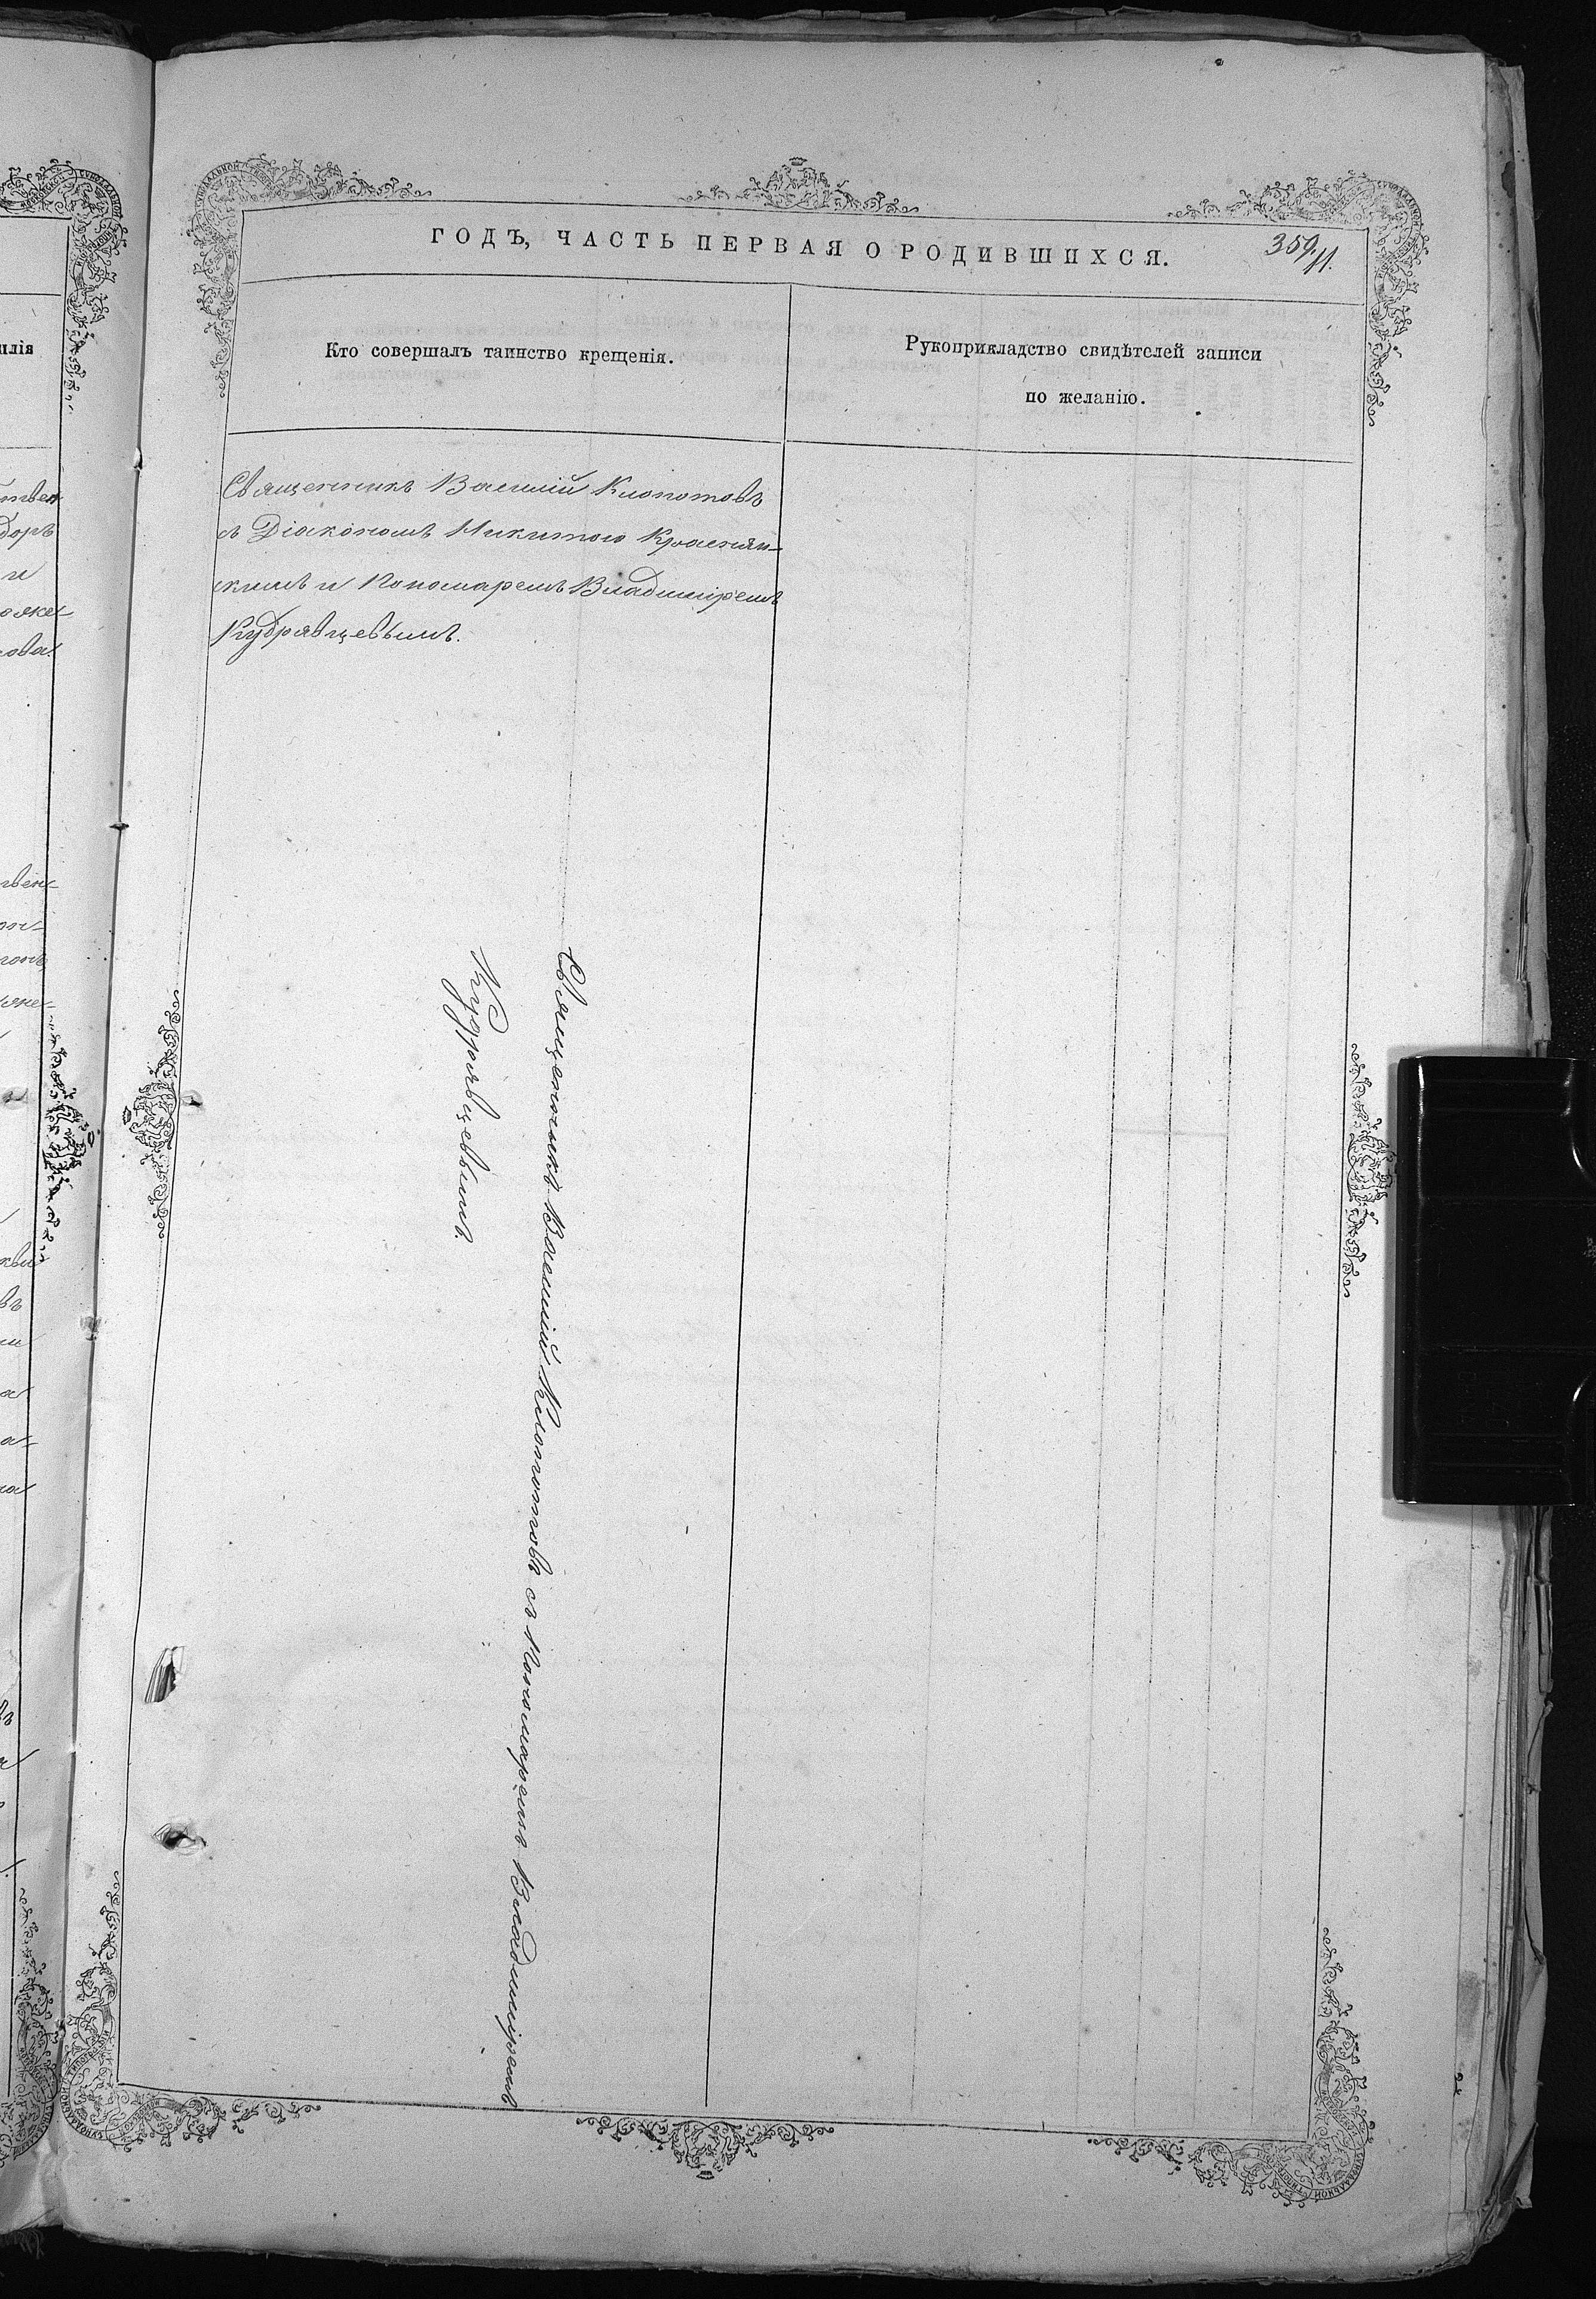 ГОДЪ, ЧАСТЬ ПЕРВАЯ О РОДИВШИХСЯ.
359.
11.
Кто совершалъ таинство крещенія.
Рукоприкладство свидѣтелей записи
по желанію.
Священникъ Василій Клопотовъ
съ Діакономъ Никитою Краснян-
скимъ и Пономаремъ Владиміремъ
Кудрявцевымъ.
Священникъ Василій Клопотовъ съ Пономаремъ Владиміремъ
Кудрявцевымъ.